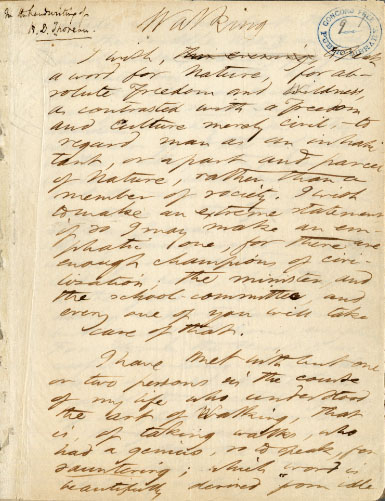 In the handwriting of
H. D. Thoreau.
Walking
CONCORD FREE PUBLIC LIBRARY
2
I wish, this evening, to speak
a word for Nature, for ab-
solute Freedom and wildness,
as contrasted with a Freedom
and Culture merely civil — to
regard man as an inhabi-
tant, or a part and parcel
of Nature, rather than a
member of society. I wish
to make an extreme statement
if so I may make an em-
phatic one, for there are
enough champions of civi-
lization; the minister and
the school-committee, and
every one of you will take
care of that.
I have met with but one
or two persons in the course
of my life who understood
the art of Walking, that
is, of taking walks, who
had a genius, so to speak, for
sauntering; which word is
beautifully derived from idle